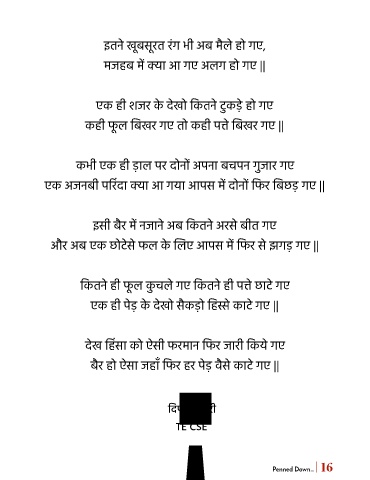 इतने खूबसूरत रंग भी अब मैले हो गए,
मजहब में क्या आ गए अलग हो गए ||
एक ही शजर के देखो कितने टुकड़े हो गए
कही फूल बिखर गए तो कही पत्ते बिखर गए ||
कभी एक ही ड़ाल पर दोनों अपना बचपन गुजार गए
एक अजनबी परिंदा क्या आ गया आपस में दोनों फिर बिछड़ गए ||
इसी बैर में नजाने अब कितने अरसे बीत गए
और अब एक छोटेसे फल के लिए आपस में फिर से झगड़ गए ||
कितने ही फूल कुचले गए कितने ही पत्ते छाटे गए
एक ही पेड़ के देखो सैकड़ो हिस्से काटे गए ||
देख हिंसा को ऐसी फरमान फिर जारी किये गए
बैर हो ऐसा जहाँ फिर हर पेड़ वैसे काटे गए ||
TE CSE
Penned Down... | 16